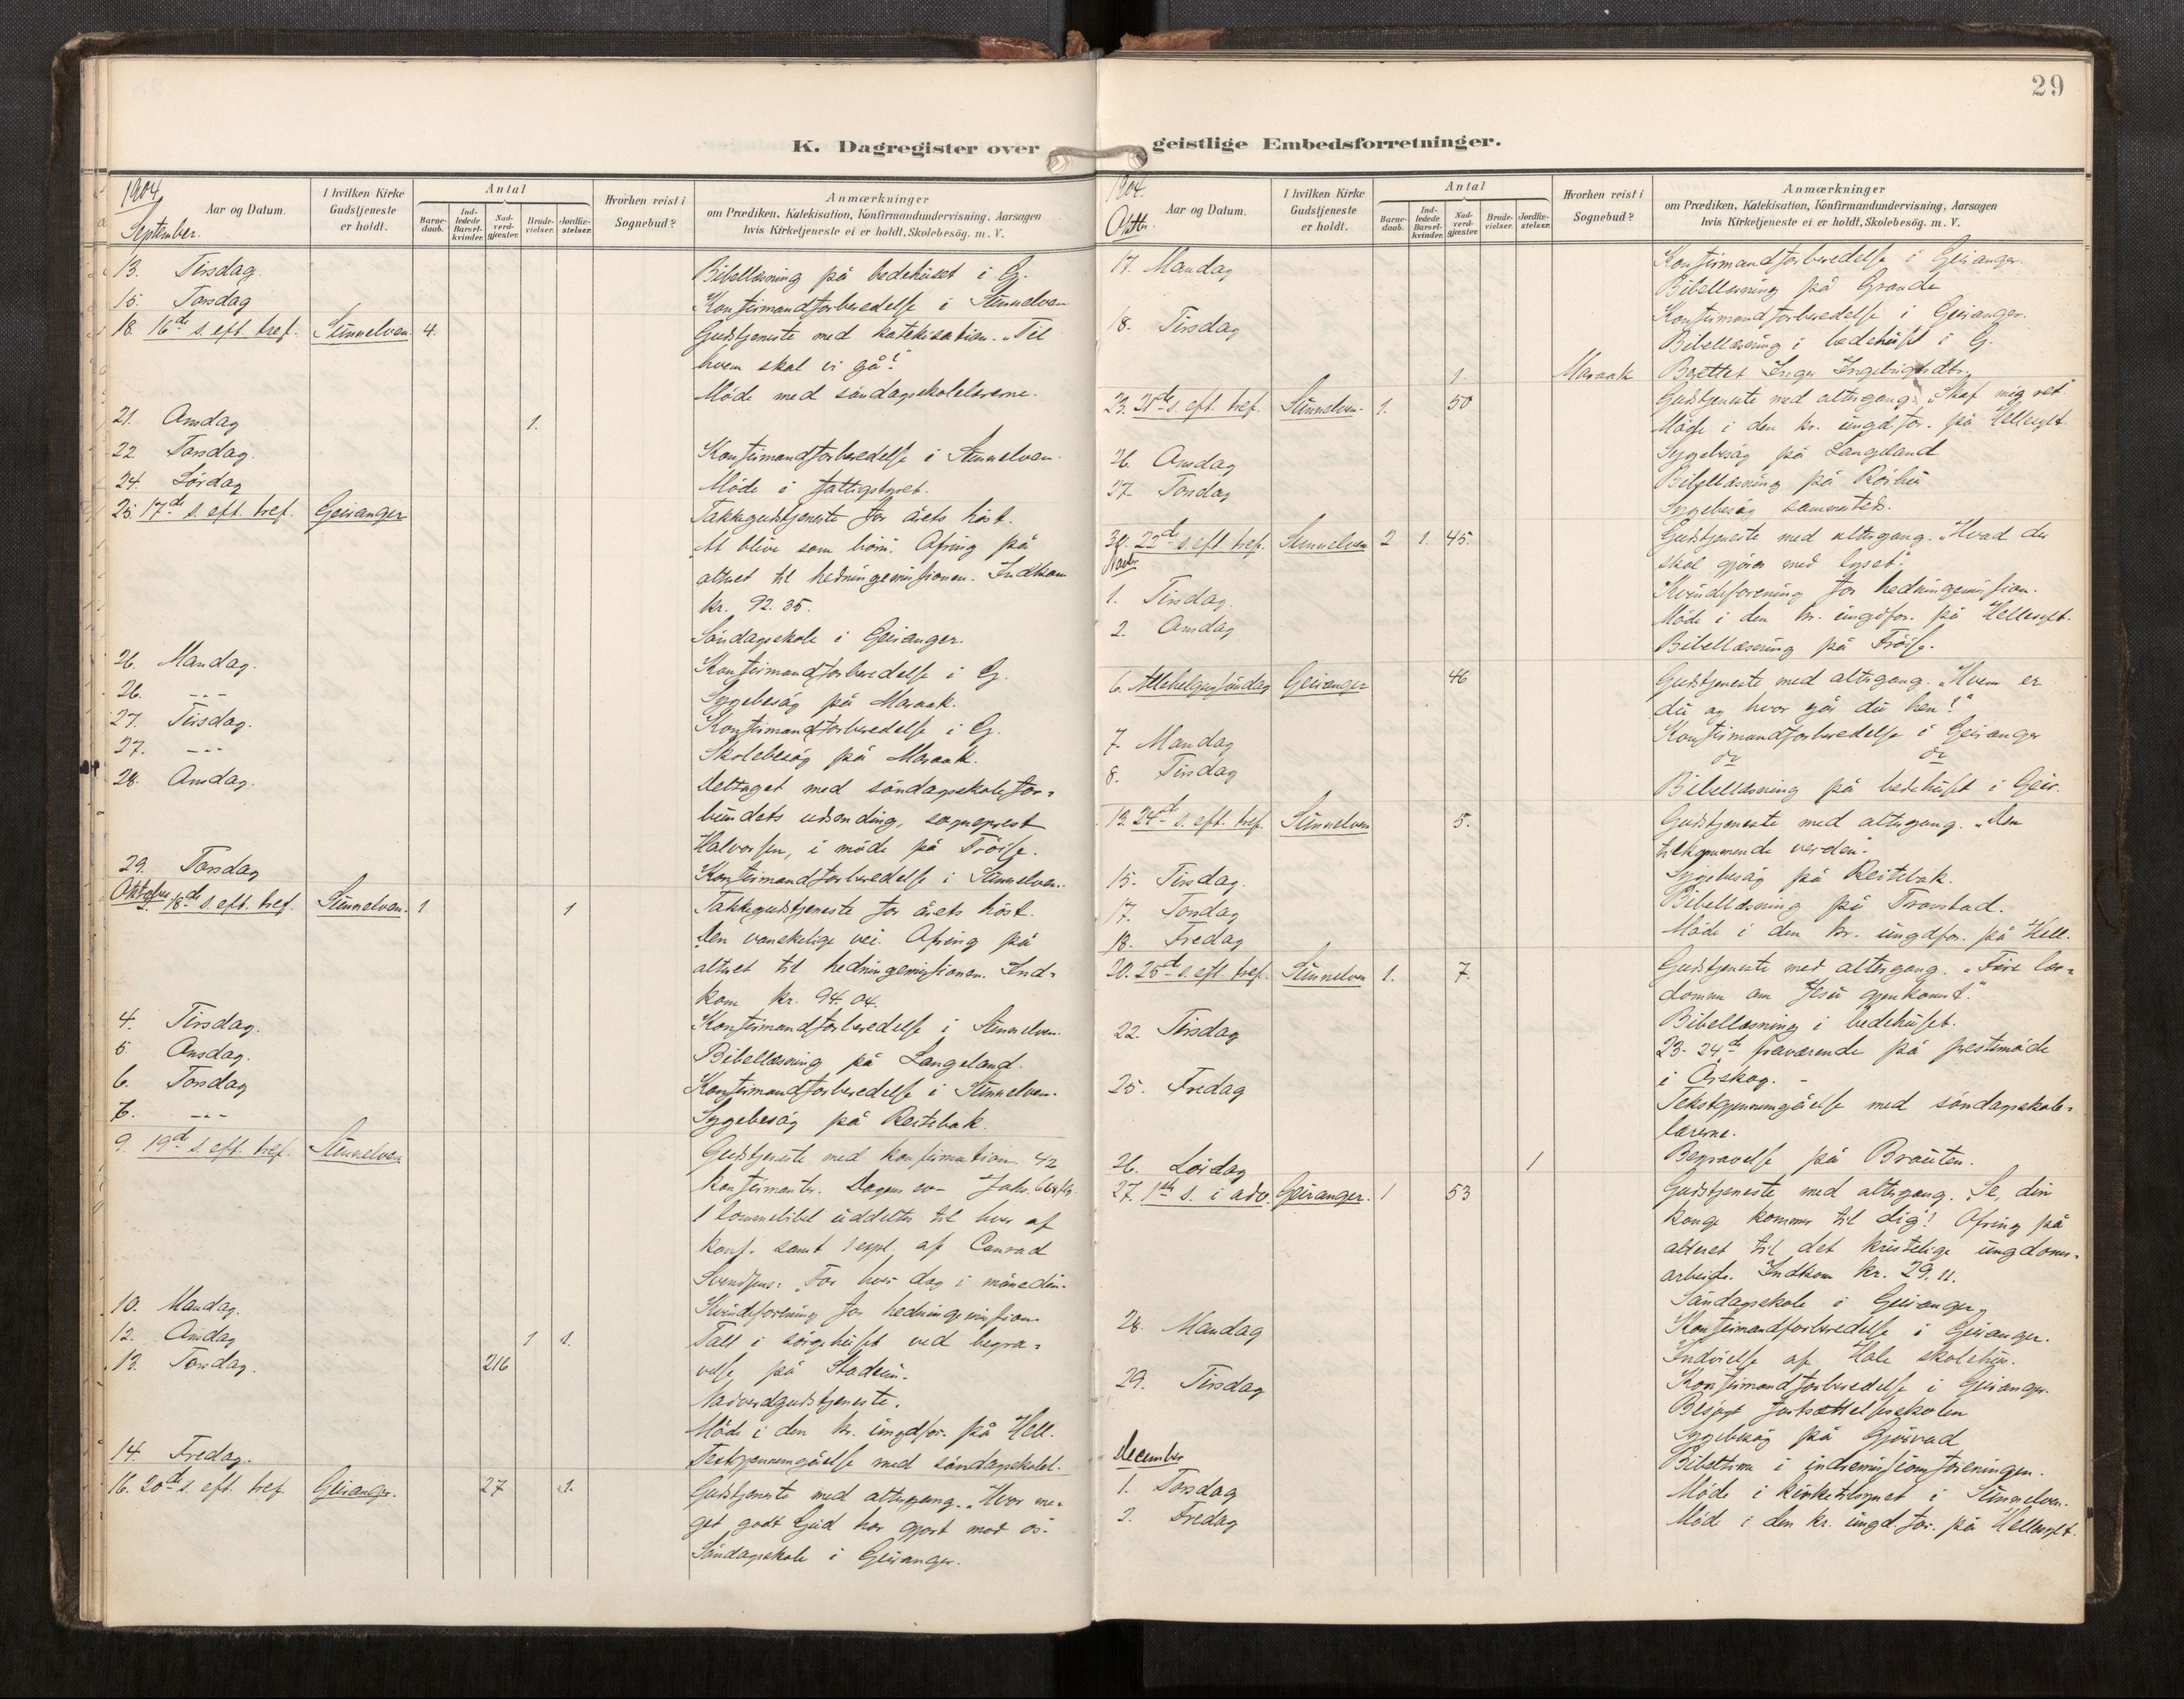 29
K. Dagregister over geistlige Embedsforretninger.
1904
September.
Aar og Datum.
I hvilken Kirke Gudstjeneste er holdt.
Antal
Barne-daab.
Ind-ledede Barsel-kvinder.
Nad-verd-gjæster.
Brude-vielser.
Jordfæ-stelser.
Hvorhen reist i Sognebud?
Anmærkninger
om Prædiken, Katekisation, Konfirmandundervisning, Aarsagen
hvis Kirketjeneste ei er holdt, Skolebesög. m. V.
13. Tirsdag. Bibellæsning på bedehuset i G.
15. Torsdag Konfirmandforberedelse i Sunnelven
18. 16de s. eft. tref. Sunnelven. 4. Gudstjeneste med katekisation. "Til
hvem skal vi gå?"
Møde med söndagsskolelærerne.
21. Onsdag 1.
22. Torsdag. Konfirmandforberedelse i Sunnelven.
24. Lördag Møde i fattigstyret.
25. 17de s. eft. tref. Geiranger Takkegudstjeneste for årets höst.
At blive som börn. Ofring på
altret til hedningemissionen. Indkom
kr. 92.35.
Söndagsskole i Geiranger.
26. Mandag. Konfirmandforberedelse i G.
26. -"- Sygebesög på Maraak.
27. Tirsdag. Konfirmandforberedelse i G.
27. -"- Skolebesög på Maraak.
28. Onsdag. Deltaget med söndagsskolefor-
bundets udsending, sogneprest
Halvorsen, i möde på Tröise.
29. Torsdag Konfirmandforberedelse i Sunnelven.
Oktober
2. 18de s. eft. tref. Sunnelven. 1 1 Takkegudstjeneste for årets höst.
Den vanskelige vei. Ofring på
altret til hedningemissionen. Ind-
kom kr. 94.04.
4. Tirsdag. Konfirmandforberedelse i Sunnelven.
5. Onsdag. Bibellæsning på Langeland.
6. Torsdag Konfirmandforberedelse i Sunnelven.
6. -"- Sygebesög på Reitebak.
9. 19de s. eft. tref. Sunnelven Gudstjeneste med konfirmation 42
konfirmanter. Dagens ev-
1 lommebibel uddeltes til hver af
konf. samt 1 expl. af Conrad
Svendsens: For hver dag i måneden.
10. Mandag. Kvindeforening for hedningemission
12. Onsdag 1 1. Tale i sörgehuset ved begra-
13. Torsdag. 216 velse på Stadeim.
Nadverdgudstjeneste.
Möde i den kr. ungdfor. på Hell.
14. Fredag. Textgjennemgåelse med söndagsskolel.
16. 20de s. eft. tref. Geiranger. 27 1. Gudstjeneste med altergang. "Hvor me-
get godt Gud har gjort mod os.
Söndagsskole i Geiranger.
1904.
Oktbr.
Aar og Datum.
I hvilken Kirke Gudstjeneste er holdt.
Antal
Barne-daab.
Ind-ledede Barsel-kvinder.
Nad-verd-gjæster.
Brude-vielser.
Jordfæ-stelser.
Hvorhen reist i Sognebud?
Anmærkninger
om Prædiken, Katekisation, Konfirmandundervisning, Aarsagen
hvis Kirketjeneste ei er holdt, Skolebesög. m. V.
17. Mandag Konfirmandforberedelse i Geiranger.
Bibellæsning på Grande
18. Tirsdag Konfirmandforberedelse i Geiranger.
Bibellæsning i bedehuset i G.
1 Maraak Berettet Inger Ingebrigtsdtr.
23. 21de s. eft. tref. Sunnelven. 1. 50 Gudstjeneste med altergang. "Skaf mig ret"
Möde i den kr. ungd.for. på Hellesylt.
26. Onsdag Sygebesög på Langeland
27. Torsdag Bibellæsning på Röshu
Sygebesög sammesteds.
30. 22de s. eft. tref. Sunnelven 2 1. 45. Gudstjeneste med altergang. "Hvad du
skal gjöre med lyset".
Novbr.
1. Tirsdag. Kvindeforening for hedningemission.
2. Onsdag Möde i den kr. ungdfor. på Hellesylt.
Bibellæsning på Tröise.
6. Allehelgenssöndag Geiranger 46 Gudstjeneste med altergang. "Hvem er
du og hvor går du hen!"
7. Mandag Konfirmandforberedelse i Geiranger
8. Tirsdag do do
Bibellæsning på bedehuset i Geir.
13. 24de s. eft. tref. Sunnelven 5. Gudstjeneste med altergang. "Den
tilkommende verden".
15. Tirsdag. Sygebesög på Reitebak.
17. Torsdag Bibellæsning på Tronstad.
18. Fredag Möde i den kr. ungdfor. på Hell.
20. 25de s. eft. tref. Sunnelven 1. 7. Gudstjeneste med altergang. "Fire lær-
domme om Jesu gjenkomst."
22. Tirsdag Bibellæsning i bedehuset.
23-24de fraværende på prestemöde
i Örskog. -
25. Fredag Tekstgjennemgåelse med söndagsskole-
lærerne.
26. Lördag 1 Begravelse på Brauten.
27. 1ste s. i adv. Geiranger. 1 53 Gudstjeneste med altergang. "Se, din
konge kommer til dig! Ofring på
alteret til det kristelige ungdoms-
arbeide. Indkom kr. 29.11.
Söndagsskole i Geiranger.
28. Mandag Konfirmandforberedelse i Geiranger.
Indvielse af Hole skolehus.
29. Tirsdag Konfirmandforberedelse i Geiranger.
Besögt fortsættelsesskolen
Sygebesög på Gjörvad
December
Bibeltime i indremissionsforeningen.
1. Torsdag Möde i kirketilsynet i Sunnelven.
2. Fredag Möde i den kr. ungd.for. på Hellesylt.